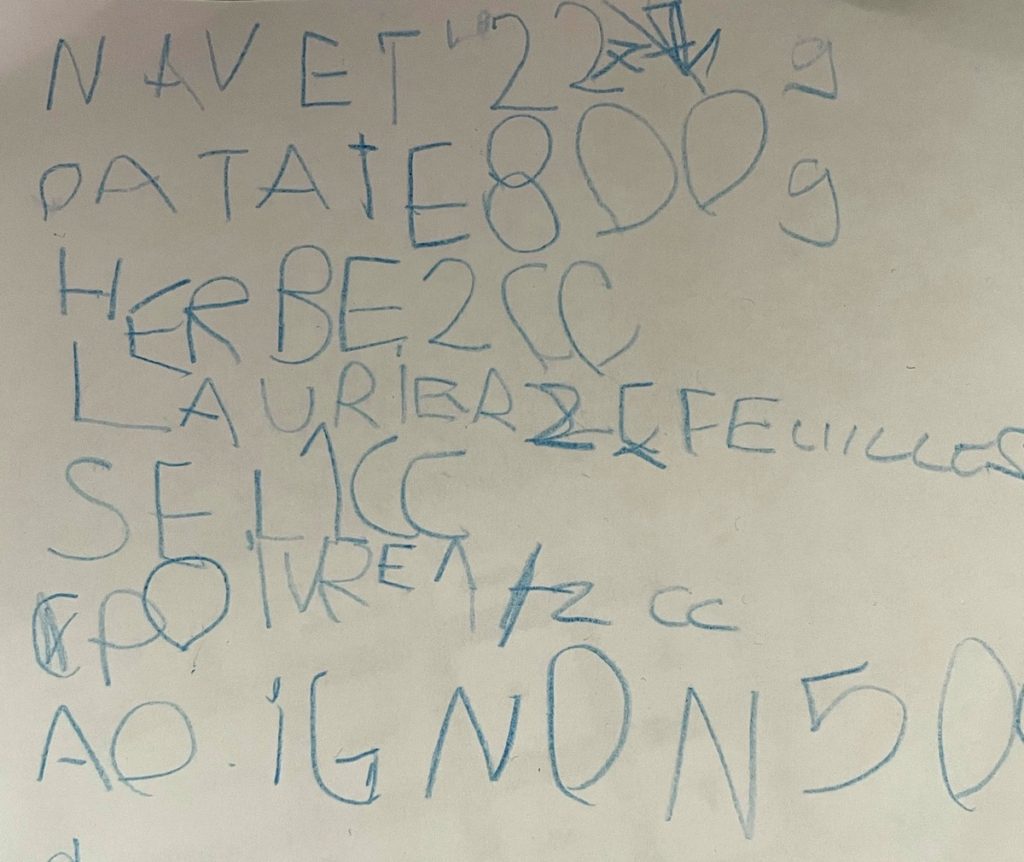 NAVET 22 g
PATATE 800 g
HERBE 2 CC
LAURIER 2 FEUILLES
SEL 1 CC
POIVRE 1/2 CC
OIGNON 50